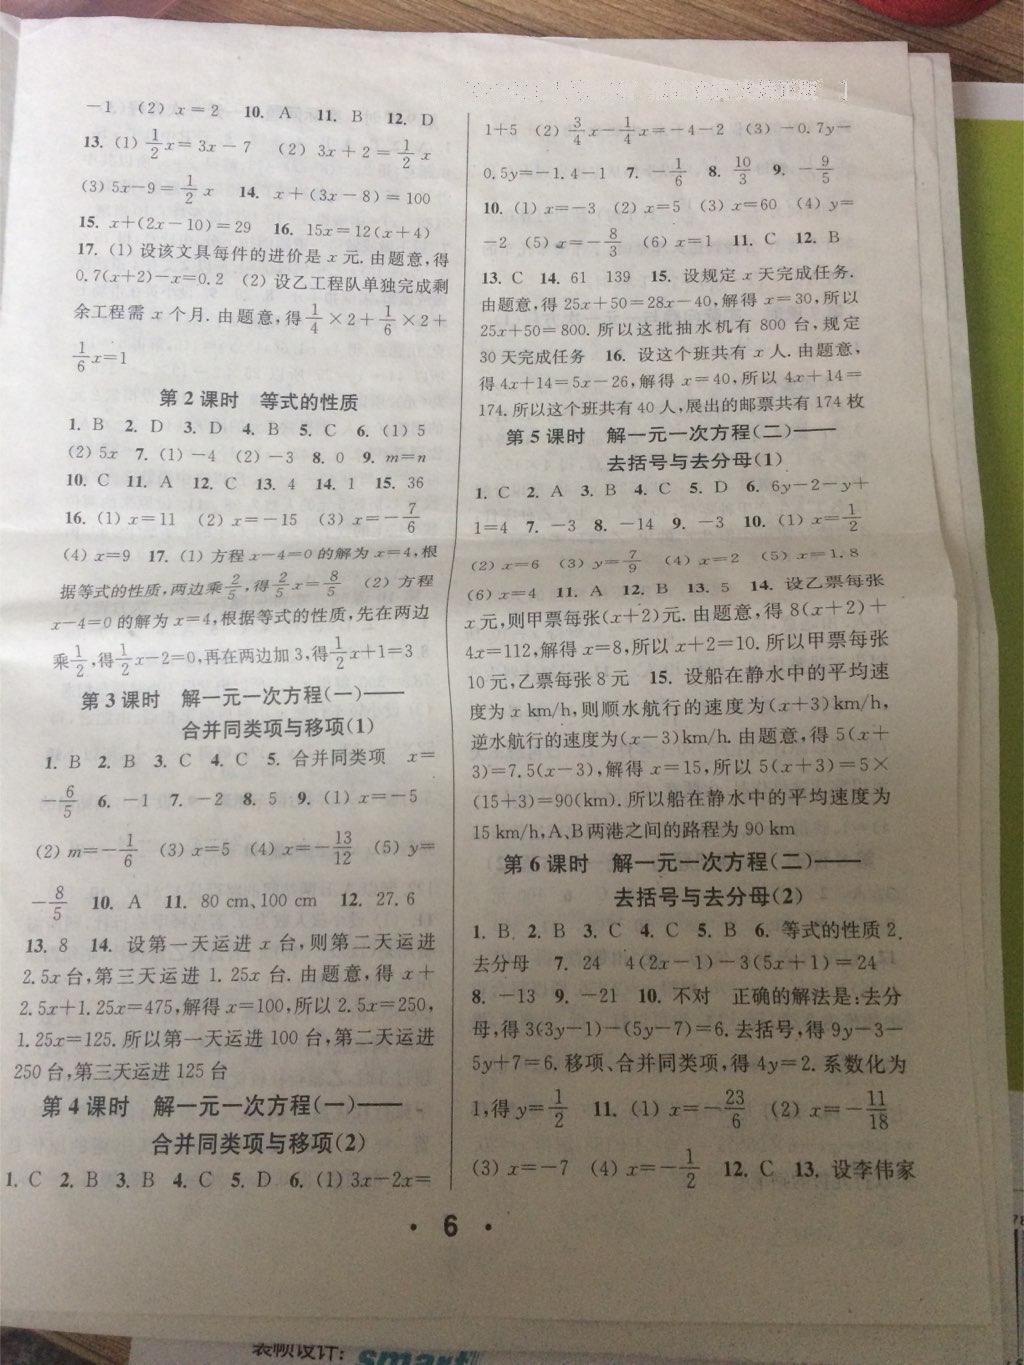 -1 (2) x=2 10. A 11. B 12. D
13. (1) 1/2x=3x-7 (2) 3x+2=1/2x
(3) 5x-9=1/2x 14. x+(3x-8)=100
15. x+(2x-10)=29 16. 15x=12(x+4)
17. (1) 设该文具每件的进价是 x 元. 由题意,得
0.7(x+2)-x=0.2 (2) 设乙工程队单独完成剩
余工程需 x 个月. 由题意,得1/4×2+1/6×2+
1/6x=1
第 2 课时 等式的性质
1. B 2. D 3. D 4. B 5. C 6. (1) 5
(2) 5x 7. (1) -4 (2) -3 8. 0 9. m=n
10. C 11. A 12. C 13. 4 14. 1 15. 36
16. (1) x=11 (2) x=-15 (3) x=-7/6
(4) x=9 17. (1) 方程 x-4=0 的解为 x=4,根
据等式的性质,两边乘2/5,得2/5x=8/5 (2) 方程
x-4=0 的解为 x=4,根据等式的性质,先在两边
乘1/2,得1/2x-2=0,再在两边加 3,得1/2x+1=3
第 3 课时 解一元一次方程(一)——
合并同类项与移项(1)
1. B 2. B 3. C 4. C 5. 合并同类项 x=
-6/5 6. -1 7. -2 8. 5 9. (1) x=-5
(2) m=-1/6 (3) x=5 (4) x=-13/12 (5) y=
-8/5 10. A 11. 80 cm,100 cm 12. 27.6
13. 8 14. 设第一天运进 x 台,则第二天运进
2.5x台,第三天运进 1.25x台. 由题意,得 x+
2.5x+1.25x=475,解得 x=100,所以 2.5x=250,
1.25x=125. 所以第一天运进 100 台,第二天运进
250 台,第三天运进 125 台
第 4 课时 解一元一次方程(一)——
合并同类项与移项(2)
1. C 2. B 3. B 4. C 5. D 6. (1) 3x-2x=
1+5 (2) 3/4x-1/4x=-4-2 (3) -0.7y-
0.5y=-1.4-1 7. -1/6 8. 10/3 9. -9/5
10. (1) x=-3 (2) x=5 (3) x=60 (4) y=
-2 (5) x=-8/3 (6) x=1 11. C 12. B
13. C 14. 61 139 15. 设规定 x 天完成任务.
由题意,得 25x+50=28x-40,解得 x=30,所以
25x+50=800. 所以这批抽水机有 800 台,规定
30 天完成任务 16. 设这个班共有 x 人. 由题意,
得 4x+14=5x-26,解得 x=40,所以 4x+14=
174. 所以这个班共有 40 人,展出的邮票共有 174 枚
第 5 课时 解一元一次方程(二)——
去括号与去分母(1)
1. C 2. A 3. B 4. C 5. D 6. 6y-2-y+
1=4 7. -3 8. -14 9. -3 10. (1) x=1/2
(2) x=6 (3) y=7/9 (4) x=2 (5) x=1.8
(6) x=4 11. A 12. B 13. 5 14. 设乙票每张
x 元,则甲票每张(x+2)元. 由题意,得 8(x+2)+
4x=112,解得 x=8,所以 x+2=10. 所以甲票每张
10 元,乙票每张 8 元 15. 设船在静水中的平均速
度为 x km/h,则顺水航行的速度为(x+3)km/h,
逆水航行的速度为(x-3)km/h. 由题意,得 5(x+
3)=7.5(x-3),解得 x=15,所以 5(x+3)=5×
(15+3)=90(km). 所以船在静水中的平均速度为
15 km/h,A、B两港之间的路程为 90 km
第 6 课时 解一元一次方程(二)——
去括号与去分母(2)
1. B 2. B 3. C 4. C 5. B 6. 等式的性质 2
去分母 7. 24 4(2x-1)-3(5x+1)=24
8. -13 9. -21 10. 不对 正确的解法是:去分
母,得 3(3y-1)-(5y-7)=6. 去括号,得 9y-3-
5y+7=6. 移项、合并同类项,得 4y=2. 系数化为
1,得 y=1/2 11. (1) x=-23/6 (2) x=-11/18
(3) x=-7 (4) x=-1/2 12. C 13. 设李伟家
· 6 ·
装帧设计:
smart
78